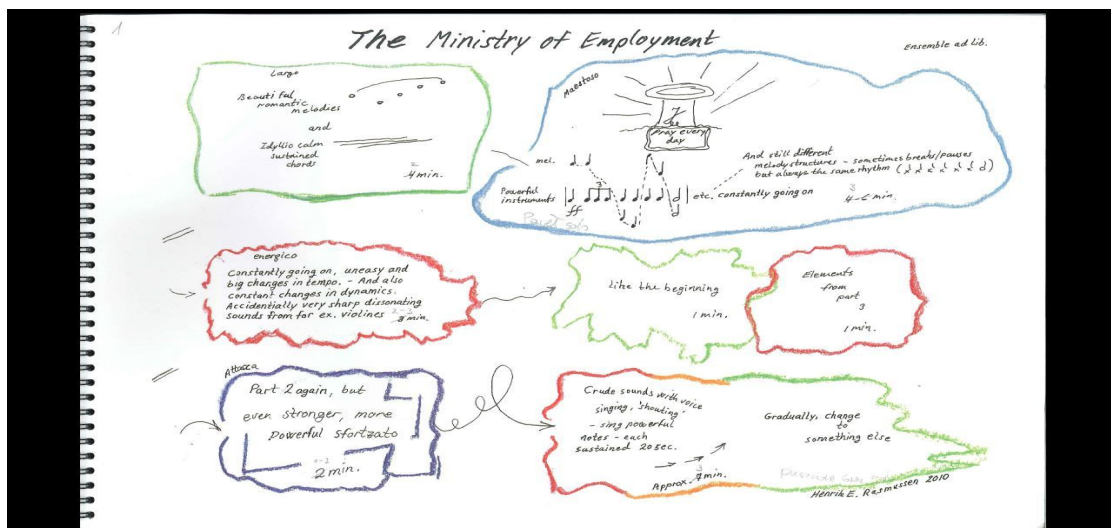 1
The Ministry of Employment
Ensemble ad lib.
Largo
Beautiful
romantic
melodies
and
Idyllio calm
sustained
chords
2
4 min.
Maestoso
Pray every
day
mel.
And still different
melody structures - sometimes breaks/pauses
but always the same rhythm
Powerful
instruments
3
ff
etc, constantly going on
3
4-6 min.
energico
Constantly going on, uneasy and
big changes in tempo. - And also
constant changes in dynamics.
Accidentially very sharp dissonating
sounds from for ex. violines
2-3
min.
like the beginning
1 min.
Elements
from
part
3
1 min.
Attacca
Part 2 again, but
even stronger, more
powerful sfortzato
2 min.
Crude sounds with voice
singing, "shouting"
- sing powerful
notes - each
sustained 20 sec.
3
Approx. min.
Gradually, change
to
something else
Henrik E. Rasmussen 2010